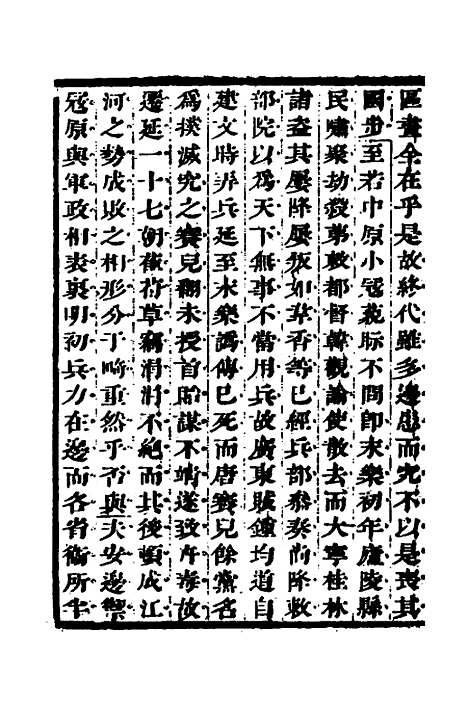 區畫全在乎是故終代雖多邊患而究不以是喪其
國步至若中原小寇藐脈不問卽永樂初年廬陵縣
民嘯聚劫殺第敕都督韓觀論使散去而大寧桂林
諸盜其屢降屢叛如革吞等已經兵部叅奏尚降敕
部院以爲天下無事不當用兵故廣東賊鐘均道自
建文時弄兵延至永樂譌傳已死而唐賽兒餘黨名
爲撲滅究之賽兒翻未授首貽謀不靖遂致弁毒
遷延一十七朝萑苻草竊涓涓不絶而其後頓成江
河之勢成敗之相形分于畸重然乎否與夫安邊禦
寇原與軍政相表裏明初兵力在邊而各省衞所半